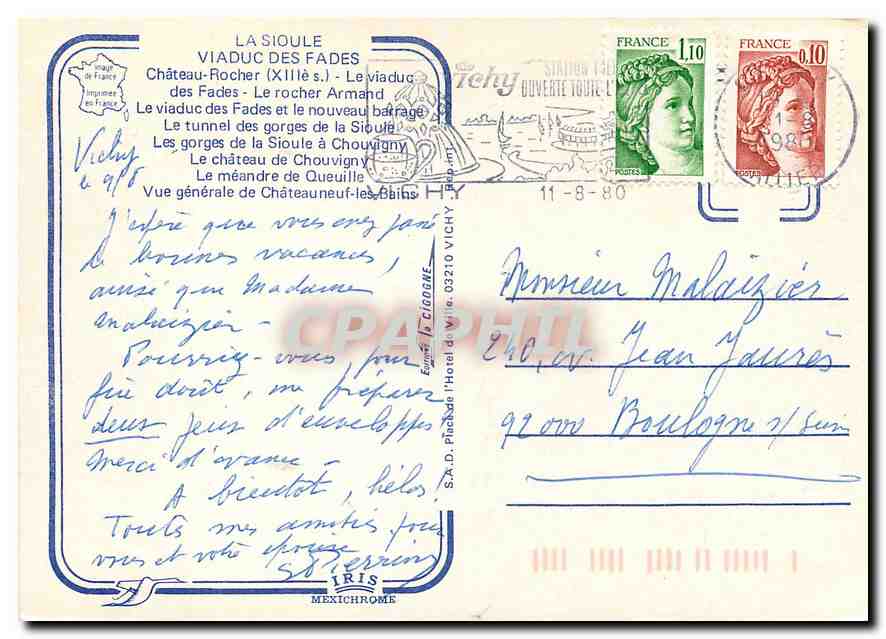 LA SIOULE
VIADUC DES FADES
Château-Rocher (XIIIè s.) - Le viaduc
des Fades - Le rocher Armand
Le viaduc des Fades et le nouveau barrage
Le tunnel des gorges de la Sioule
Les gorges de la Sioule à Chouvigny
Le château de Chouvigny
Le méandre de Queuille
Vue générale de Châteauneuf-les-Bains
Image
de France
Imprimée
en France
Vichy
le 9/8
J'espère que vous avez passé
de bonnes vacances,
ainsi que Madame
Malaizier -
Pourriez-vous pour
fin août, me préparer
deux jeux d'enveloppes
Merci d'avance -
A bientôt, hélas!
Toutes mes amitiés pour
vous et votre épouse
IRIS
MEXICHROME
Editions la CIGOGNE
S.A.D. Place de l'Hotel de Ville. 03210 VICHY Rep. int.
Vichy
STATION
OUVERTE TOUTE L'
VICHY
11-8-80
FRANCE 1,10
POSTES
FRANCE 0,10
POSTES
Monsieur Malaizier
240, av. Jean Jaurès
92000 Boulogne s/ Seine
CPAPHIL